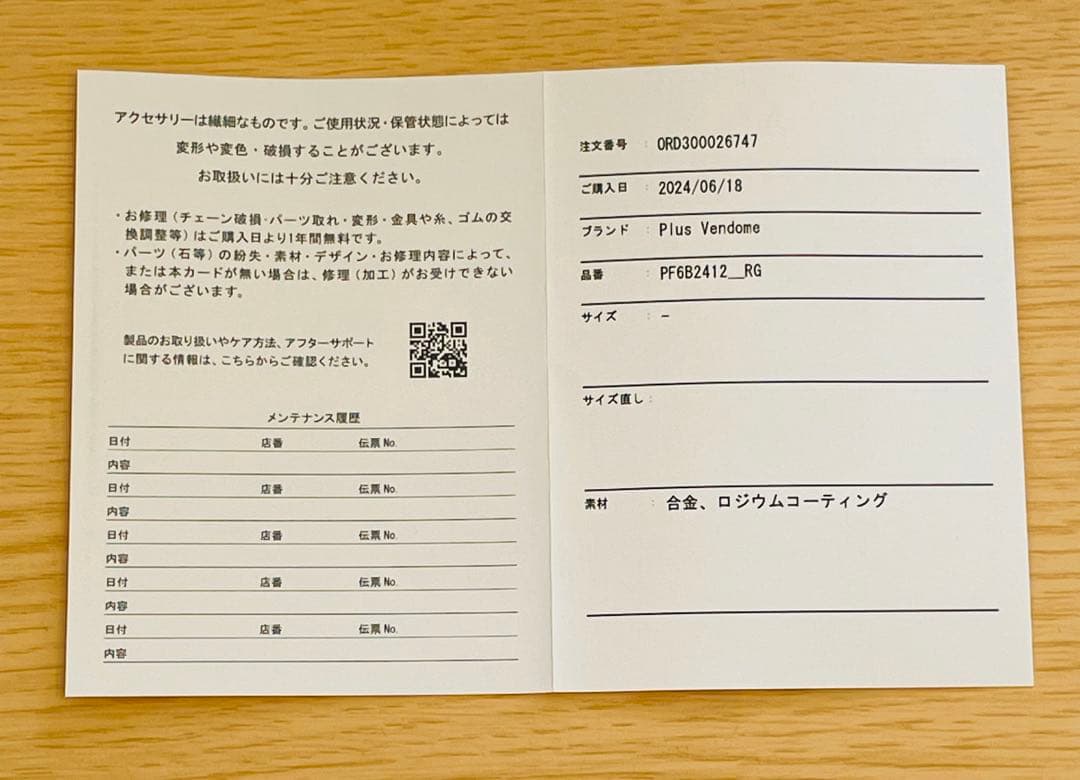 アクセサリーは繊細なものです。ご使用状況・保管状態によっては
変形や変色・破損することがございます。
お取扱いには十分ご注意ください。
・お修理（チェーン破損・パーツ取れ・変形・金具や糸、ゴムの交
換調整等）はご購入日より1年間無料です。
・パーツ（石等）の紛失・素材・デザイン・お修理内容によって、
または本カードが無い場合は、修理（加工）がお受けできない
場合がございます。
製品のお取り扱いやケア方法、アフターサポート
に関する情報は、こちらからご確認ください。
メンテナンス履歴
日付 店番 伝票No.
内容
日付 店番 伝票No.
内容
日付 店番 伝票No.
内容
日付 店番 伝票No.
内容
日付 店番 伝票No.
内容
注文番号 : ORD300026747
ご購入日 : 2024/06/18
ブランド : Plus Vendome
品番 : PF6B2412__RG
サイズ : −
サイズ直し :
素材 : 合金、ロジウムコーティング